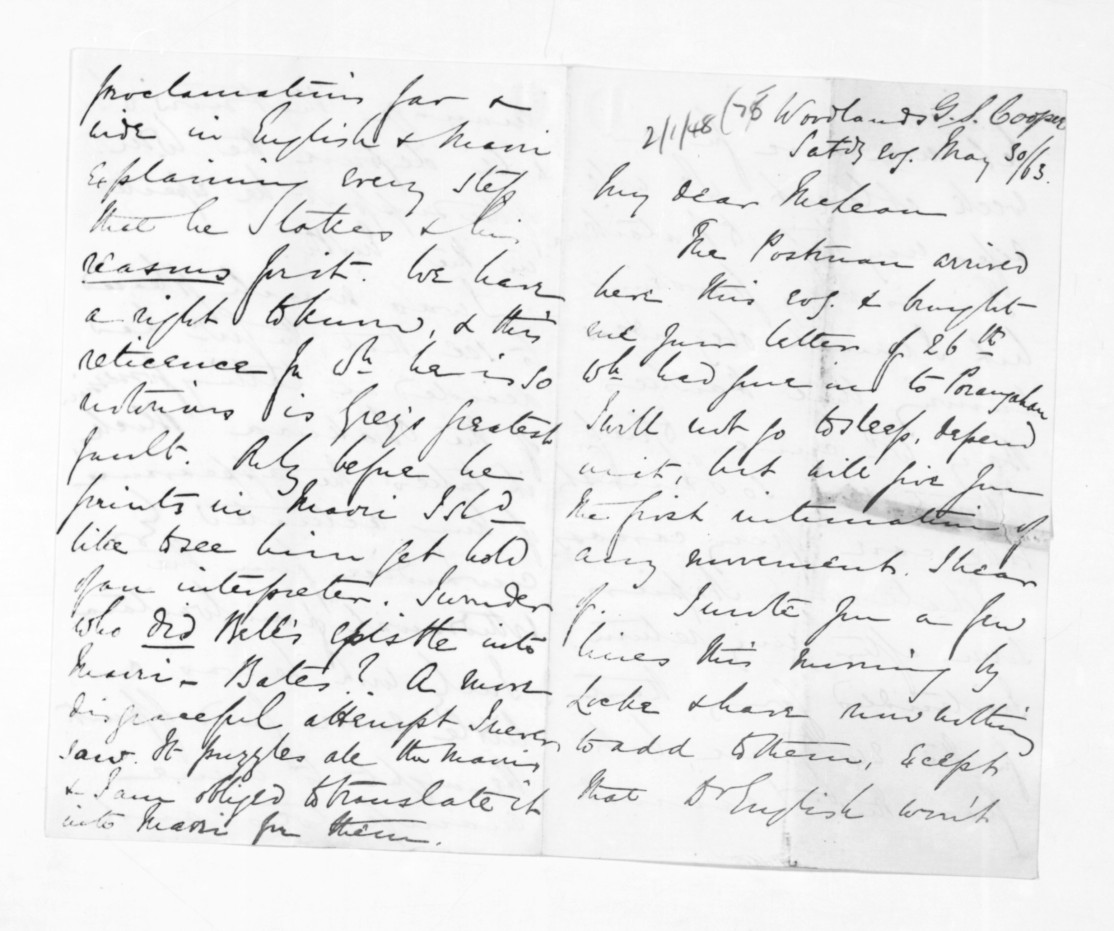 2/1/48 Woodlands G. S. Cooper
Satdy evg. May 30/63.
My dear McLean
The Postman arrived
here this evg. & brought
me your letter of 26th
wh. had gone in to Porangahau
I will not go to sleep, depend
on it, but will give you
the first intimation of
any movement I hear
of. I wrote you a few
lines this morning by
Locke & have now nothing
to add to them, except
that Dr English won't
proclamations far &
wide in English & Maori
explaining every step
that he takes & his
reasons for it. We have
a right to know, & this
reticence for wh. he is so
notorious is Grey's greatest
fault. Only before he
prints in Maori I shd
like to see him get hold
of an interpreter. I wonder
who did Bell's epistle into
Maori - Bates? A more
disgraceful attempt I never
saw. It puzzles all the Maoris
& I am obliged to translate it
into Maori for them.